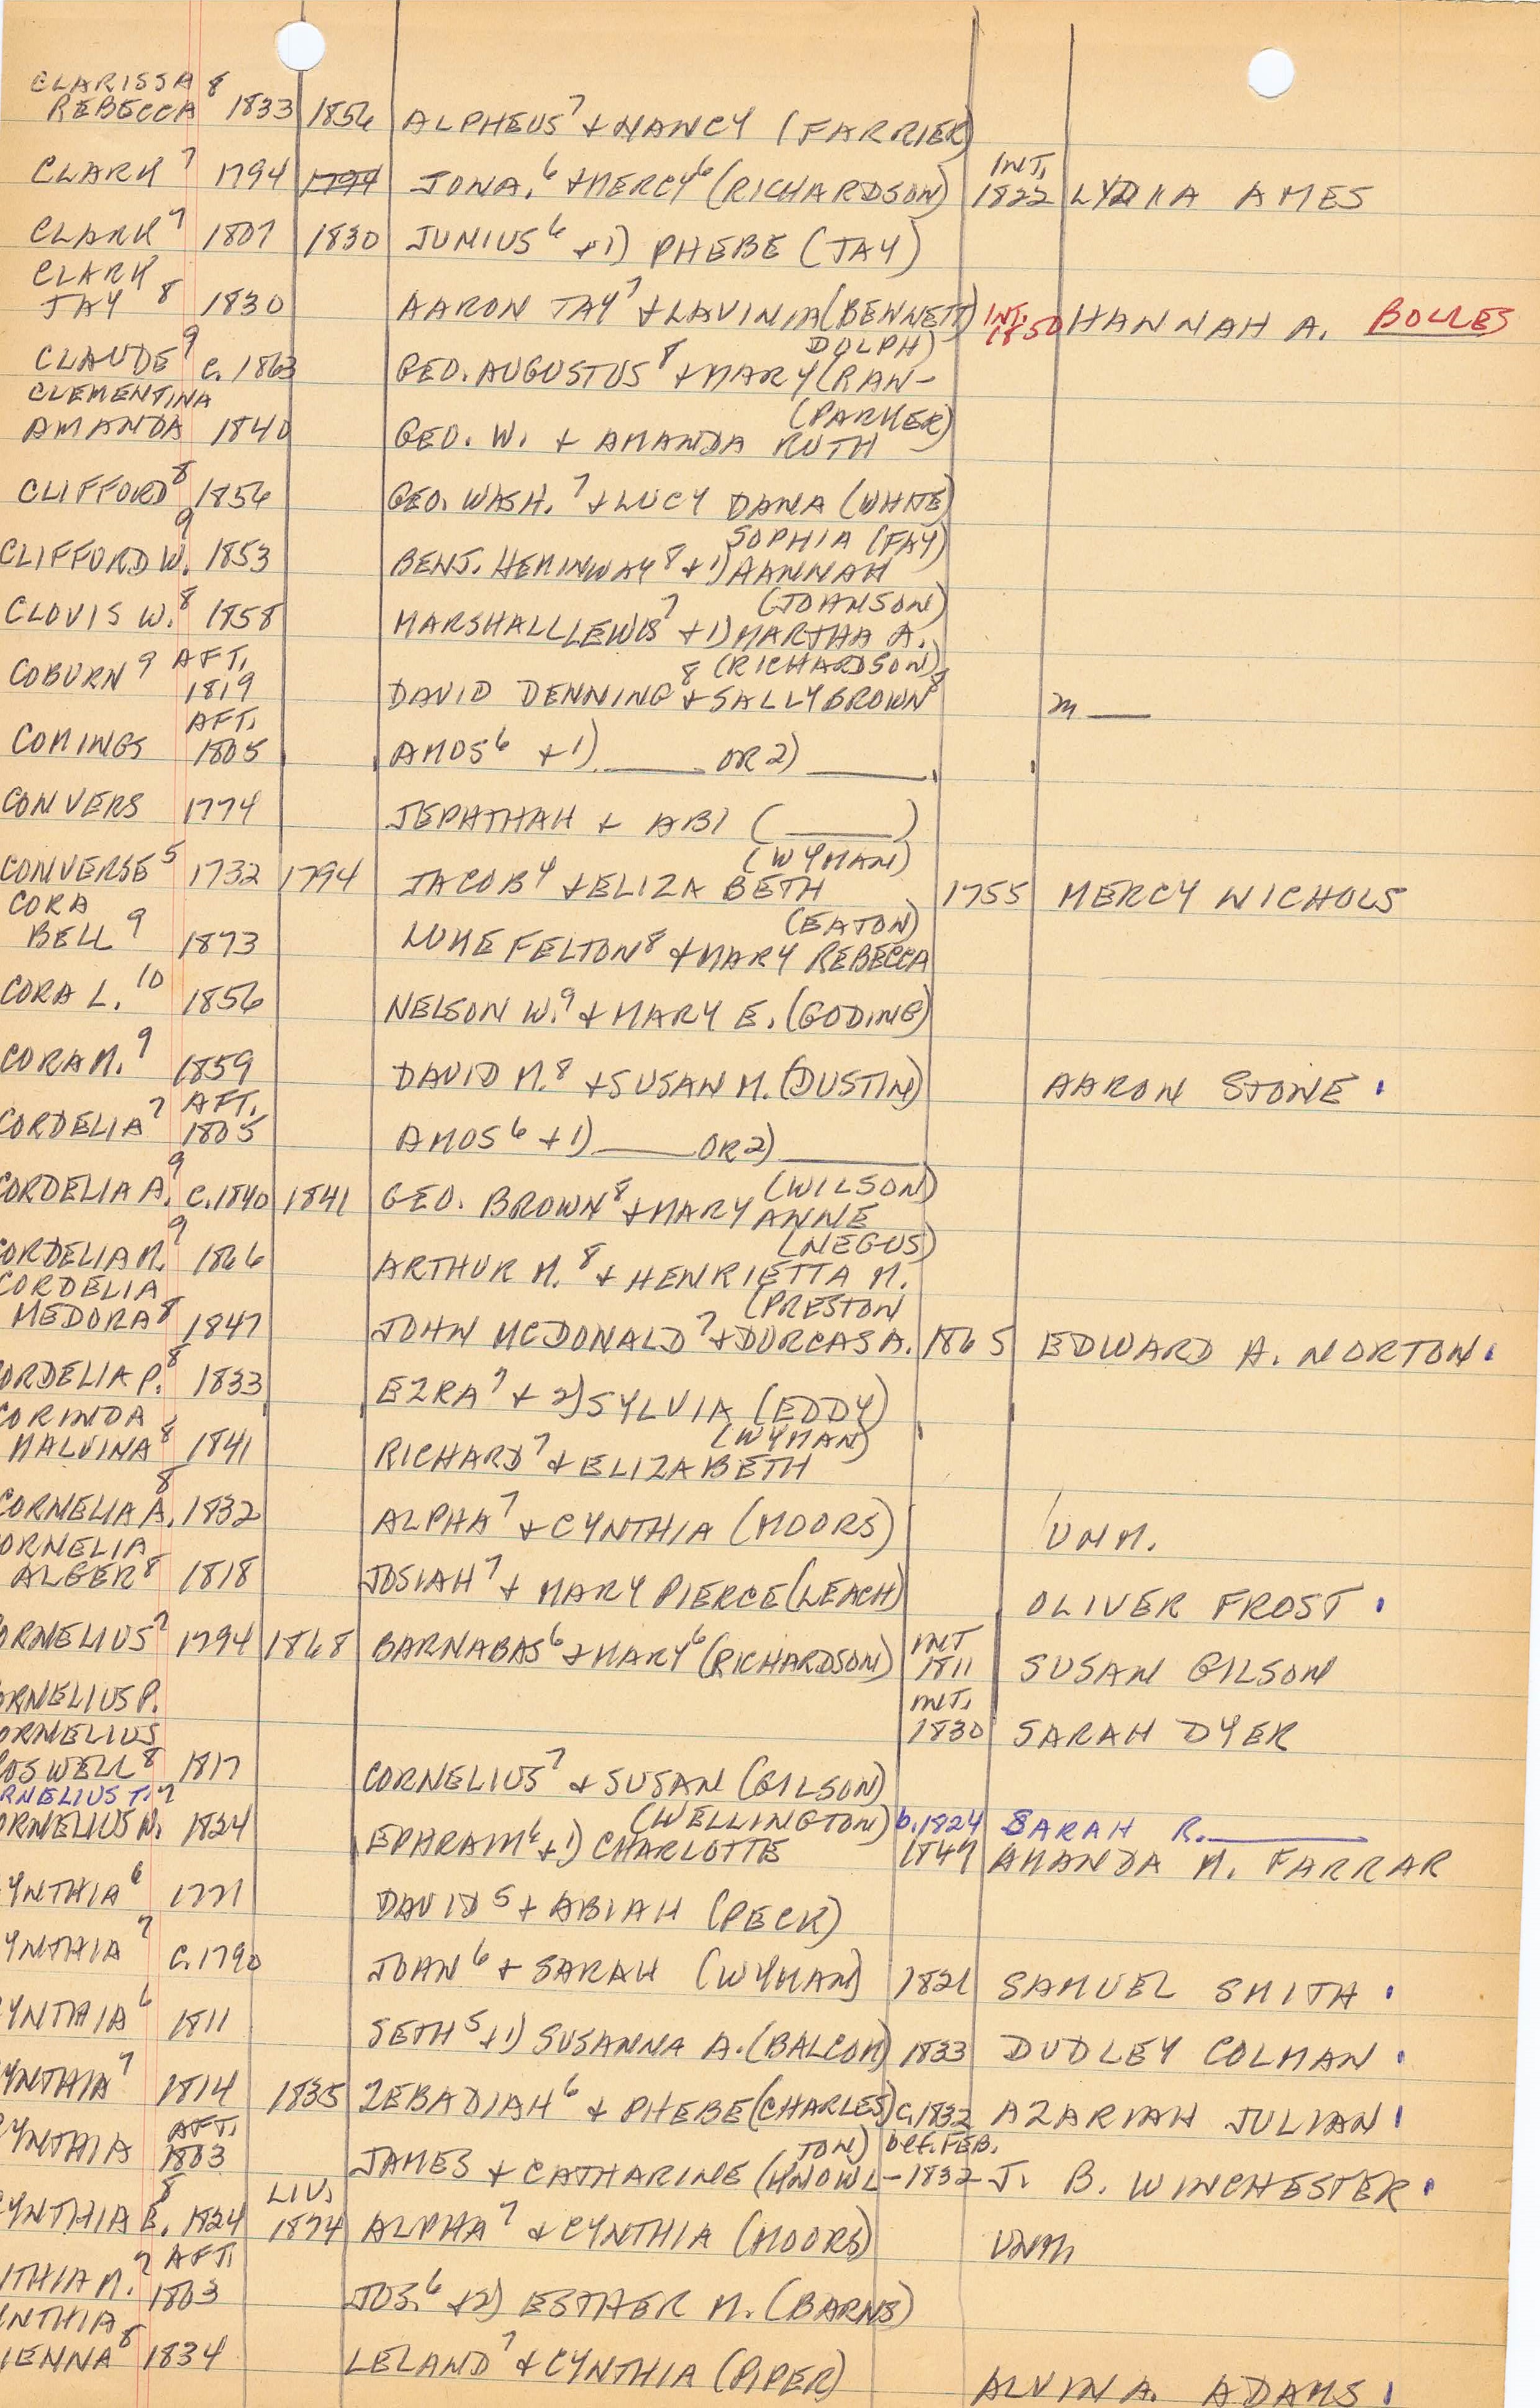 CLARISSA 8
REBECCA 1833 1856 ALPHEUS 7 & NANCY (FARRIER)
INT.
CLARK 7 1794 1794 JONA. 6 & MERCY 6 (RICHARDSON) 1822 LYDIA AMES
CLARK 7 1807 1830 JUNIUS 6 & 1) PHEBE (JAY)
CLARK
JAY 8 1830 AARON JAY 7 & LAVINIA (BENNETT) INT. 1850 HANNAH A. BOLLES
DOLPH)
CLAUDE 9 C. 1863 GEO. AUGUSTUS 8 & MARY (RAN-
CLEMENTINA (PARKER)
AMANDA 1840 GEO. W. & AMANDA RUTH
CLIFFORD 8 1856 GEO. WASH. 7 & LUCY DANA (WHITE)
SOPHIA (FAY)
CLIFFORD W. 9 1853 BENJ. HEMINWAY 8 & 1) HANNAH
(JOHNSON)
CLOVIS W. 8 1858 MARSHALL LEWIS 7 & 1) MARTHA A.
AFT. (RICHARDSON)
COBURN 9 1819 DAVID DENNING 8 & SALLY BROWN 8 m ___
AFT.
COMINGS 1805 AMOS 6 & 1) ____ OR 2) ____
CONVERS 1774 JEPHTHAH & ABI (____)
(WYMAN)
CONVERSE 5 1732 1794 JACOB 4 & ELIZABETH 1755 MERCY NICHOLS
CORA (EATON)
BELL 9 1873 LUKE FELTON 8 & MARY REBECCA
CORA L. 10 1856 NELSON W. 9 & MARY E. (GODING)
CORA M. 9 1859 DAVID M. 8 & SUSAN M. (DUSTIN) AARON STONE .
AFT.
CORDELIA 7 1805 AMOS 6 & 1) ____ OR 2) ____
(WILSON)
CORDELIA A. 9 C. 1840 1841 GEO. BROWN 8 & MARY ANNE
(NEGUS)
CORDELIA M. 9 1866 ARTHUR M. 8 & HENRIETTA M.
CORDELIA (PRESTON
MEDORA 8 1847 JOHN MCDONALD 7 & DORCAS A. 1865 EDWARD A. NORTON.
ORDELIA P. 8 1833 EZRA 7 & 2) SYLVIA (EDDY)
CORINDA (WYMAN)
MALVINA 8 1841 RICHARD 7 & ELIZABETH
CORNELIA A. 8 1832 ALPHA 7 & CYNTHIA (MOORS) UNM.
ORNELIA
ALGER 8 1818 JOSIAH 7 & MARY PIERCE (LEACH) OLIVER FROST .
INT
ORNELIUS 7 1794 1868 BARNABAS 6 & MARY 6 (RICHARDSON) 1811 SUSAN GILSON
INT.
ORNELIUS P. 1830 SARAH DYER
ORNELIUS
OSWELL 8 1817 CORNELIUS 7 & SUSAN (GILSON)
RNELIUS T. 7 (WELLINGTON) b. 1824 SARAH R. ____
ORNELIUS N. 1824 EPHRAIM 6 & 1) CHARLOTTE 1847 AMANDA M. FARRAR
YNTHIA 6 1771 DAVID 5 & ABIAH (PECK)
YNTHIA 7 C. 1790 JOHN 6 & SARAH (WYMAN) 1821 SAMUEL SMITH .
YNTHIA 6 1811 SETH 5 & 1) SUSANNA A. (BALCOM) 1833 DUDLEY COLMAN .
YNTHIA 7 1814 1835 ZEBADIAH 6 & PHEBE (CHARLES) C. 1832 AZARIAH JULIAN .
AFT. TON) bef. FEB.
YNTHIA 1803 JAMES & CATHARINE (KNOWL- 1832 J. B. WINCHESTER .
LIV.
YNTHIA B. 8 1824 1874 ALPHA 7 & CYNTHIA (MOORS) UNM
AFT.
THIA M. 7 1803 JOS. 6 & 2) ESTHER M. (BARNS)
NTHIA
IENNA 8 1834 LELAND 7 & CYNTHIA (PIPER) ALVIN A. ADAMS .